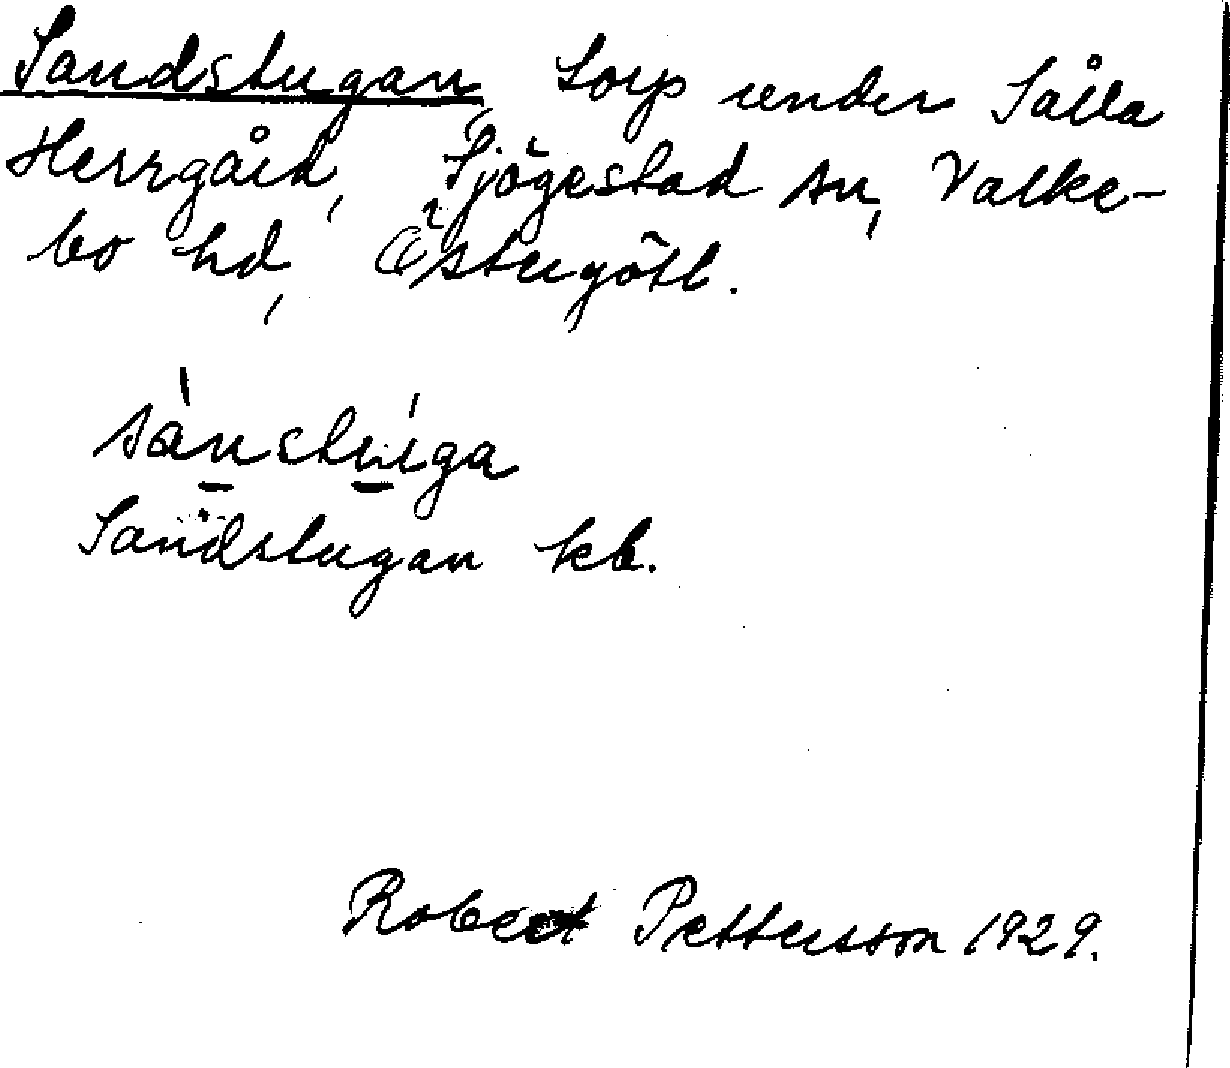 Sandstugan, torp under Sätla
Herrgård, Sjögestad sn, Valke-
bo hd, Östergötl.
sànstúga
Sandstugan kb.
Robert Pettersson 1929.